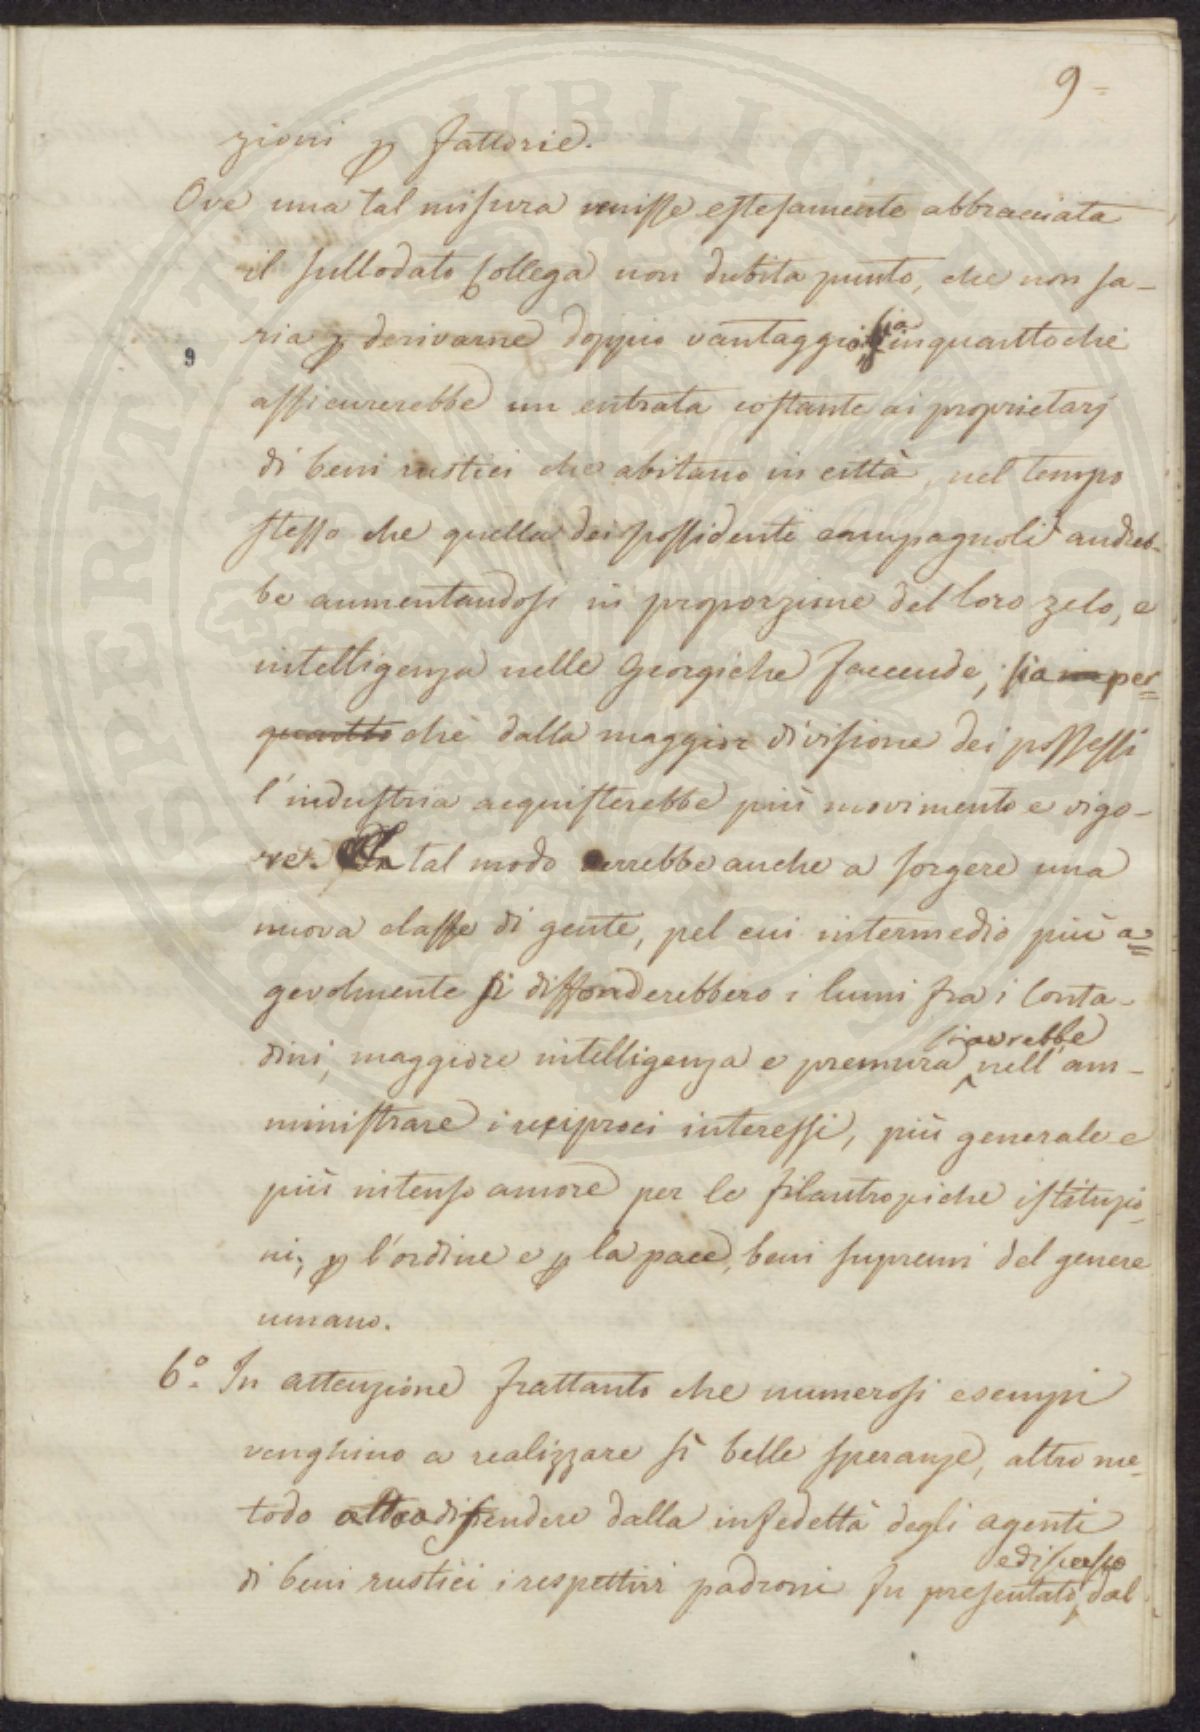 9=
zioni p fattorie.
Ove una tal misura venisse estesamente abbracciata
il sullodato Collega non dubita punto, che non sa-
9
ria p derivarne doppio vantaggio, sia inquantoche
assicurerebbe un entrata costante ai proprietarj
di beni rustici che abitano in città, nel tempo
stesso che quella dei possidenti campagnoli andreb-
be aumentandosi in proporzione del loro zelo, e
intelligenza nelle Georgiche faccende; sia in per=
quanto che dalla maggior divisione dei possessi
l'industria acquisterebbe più movimento e vigo-
re. In tal modo verrebbe anche a sorgere una
nuova classe di gente, pel cui intermedio più a=
gevolmente si diffonderebbero i lumi fra i Conta-
si avrebbe
dini, maggiore intelligenza e premura nell'am-
ministrare i reciproci interessi, più generale e
più intenso amore per le filantropiche istituzio-
ni, p l'ordine e p la pace, beni supremi del genere
umano.
6.° In attenzione frattanto che numerosi esempi
venghino a realizzare sì belle speranze, altro me-
todo a difendere dalla infedeltà degli agenti
di beni rustici i respettivi padroni fu presentato, dal